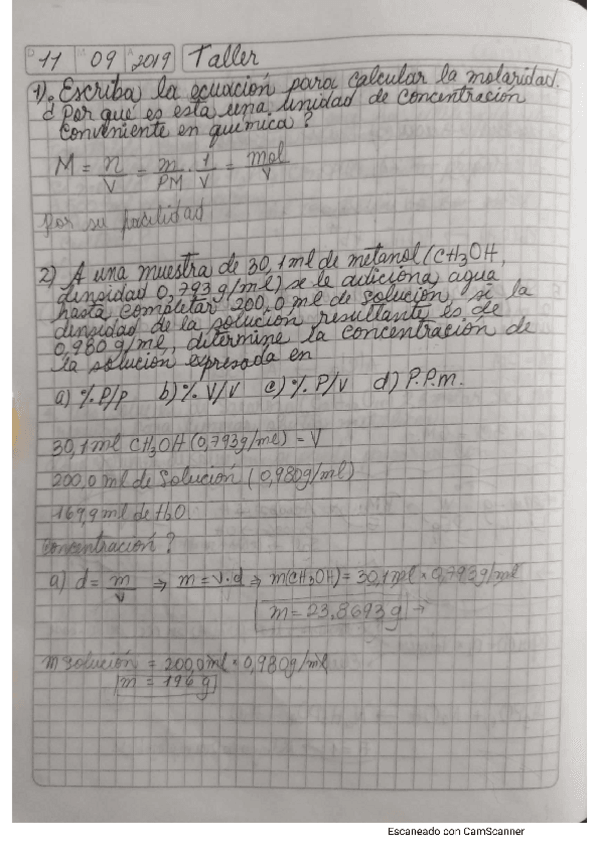 D 11 M 09 A 2019 Taller
1). Escriba la ecuación para calcular la molaridad.
¿Por qué es esta una unidad de concentración
conveniente en química?
M = n/V = m/PM · 1/V = mol/V
por su facilidad
2) A una muestra de 30,1 ml de metanol (CH3OH,
densidad 0,793 g/ml) se le adiciona agua
hasta completar 200,0 ml de solución, si la
densidad de la solución resultante es de
0,980 g/ml, determine la concentración de
la solución expresada en
a) % P/p b) % V/V c) % P/V d) P.P.m.
30,1 ml CH3OH (0,793g/ml) = V
200,0 ml de Solución (0,980g/ml)
169,9 ml de H2O
Concentración?
a) d = m/V ⇒ m = V·d ⇒ m(CH3OH) = 30,1 ml × 0,793g/ml
m = 23,8693 g →
m solución = 200,0 ml · 0,980g/ml
m = 196 g
Escaneado con CamScanner